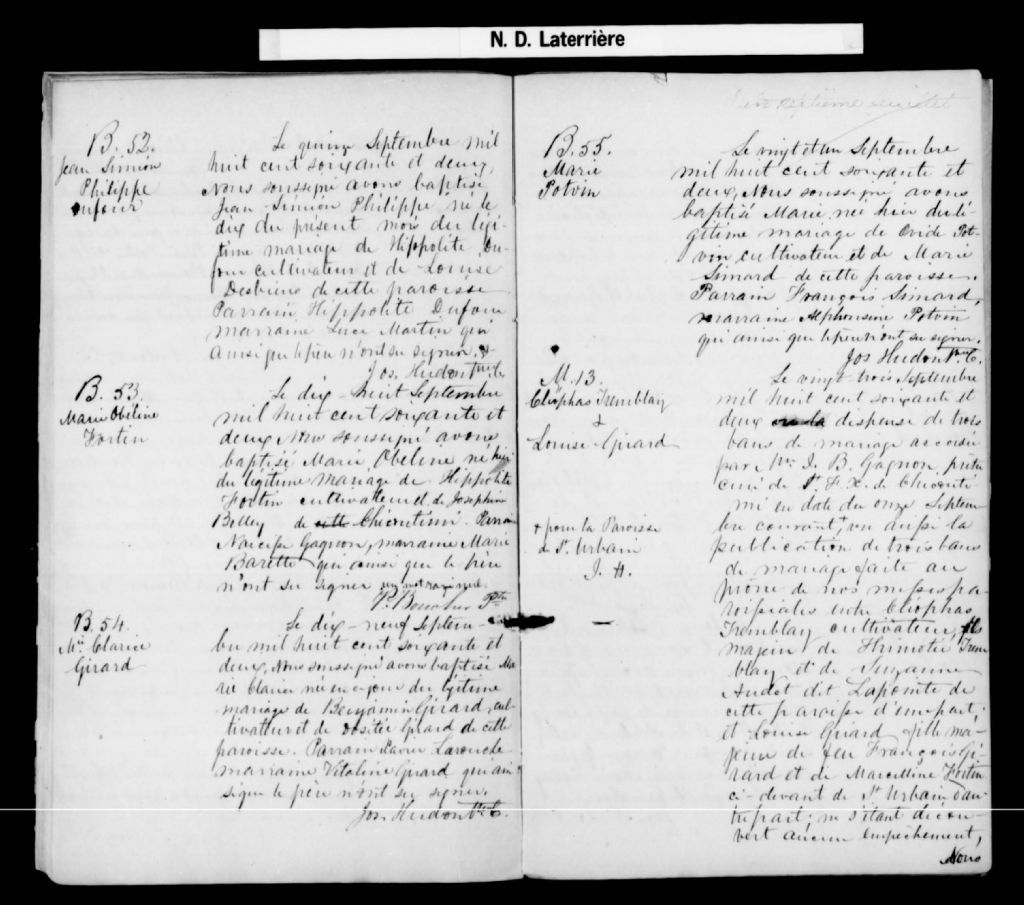 N. D. Laterrière
B. 52.
Jean Siméon
Philippe
Dufour
Le quinze Septembre mil
huit cent soixante et deux,
Nous soussigné avons baptisé
Jean Siméon Philippe, né le
dix du présent mois du légi-
time mariage de Hippolite Du-
four cultivateur et de Louise
Desbiens de cette paroisse
Parrain Hippolite Dufour
marraine Luce Martin qui
ainsi que le père n'ont su signer.
Jos. Hudon Ptre C.
B. 53.
Marie Obeline
Fortin
Le dix-huit Septembre
mil huit cent soixante et
deux Nous soussigné avons
baptisé Marie Obeline né hier
du légitime mariage de Hippolite
Fortin cultivateur et de Josephine
Bolley de cette Chicoutimi. Parrain
Narcisse Gagnon, marraine Marie
Barette qui ainsi que le père
n'ont su signer un mot rayé nul
P. Boucher Ptre
B. 54.
Mie Clarice
Girard
Le dix-neuf Septem-
bre mil huit cent soixante et
deux, Nous soussigné avons baptisé Ma-
rie Clarice née en ce jour du légitime
mariage de Benjamin Girard, cul-
tivateur et de Dositée Girard de cette
paroisse. Parrain Xavier Larouche
marraine Vitaline Girard qui ain-
si que le père n'ont su signer.
Jos Hudon Ptre C.
feuillet
B. 55.
Marie
Potvin
Le vingt et un Septembre
mil huit cent soixante et
deux, Nous soussigné avons
baptisé Marie, née hier du lé-
gitime mariage de Ovide Pot-
vin cultivateur et de Marie
Simard de cette paroisse.
Parrain François Simard,
marraine Alphonsine Potvin
qui ainsi que le père n'ont su signer.
Jos Hudon Ptre C.
M. 13.
Cléophas Tremblay
&
Louise Girard
Le vingt-trois Septembre
mil huit cent soixante et
deux vu la dispense de trois
bans de mariage accordée
par Mr J. B. Gagnon, prêtre
curé de St F. X. de Chicouti-
mi en date du onze Septem-
bre courant,+ vu aussi la
publication de trois bans
de mariage faite au
prône de nos messes pa-
roissiales entre Cléophas
Tremblay cultivateur, fils
majeur de Thimotée Trem-
blay et de Suzanne
Audet dit Lapointe de
cette paroisse d'une part;
et Louise Girard fille ma-
jeure de feu François Gi-
rard et de Marcelline Fortin
ci-devant de St Urbain d'au-
tre part; ne s'étant décou-
vert aucun empêchement,
Nous
+ pour la Paroisse
de St. Urbain
J. H.